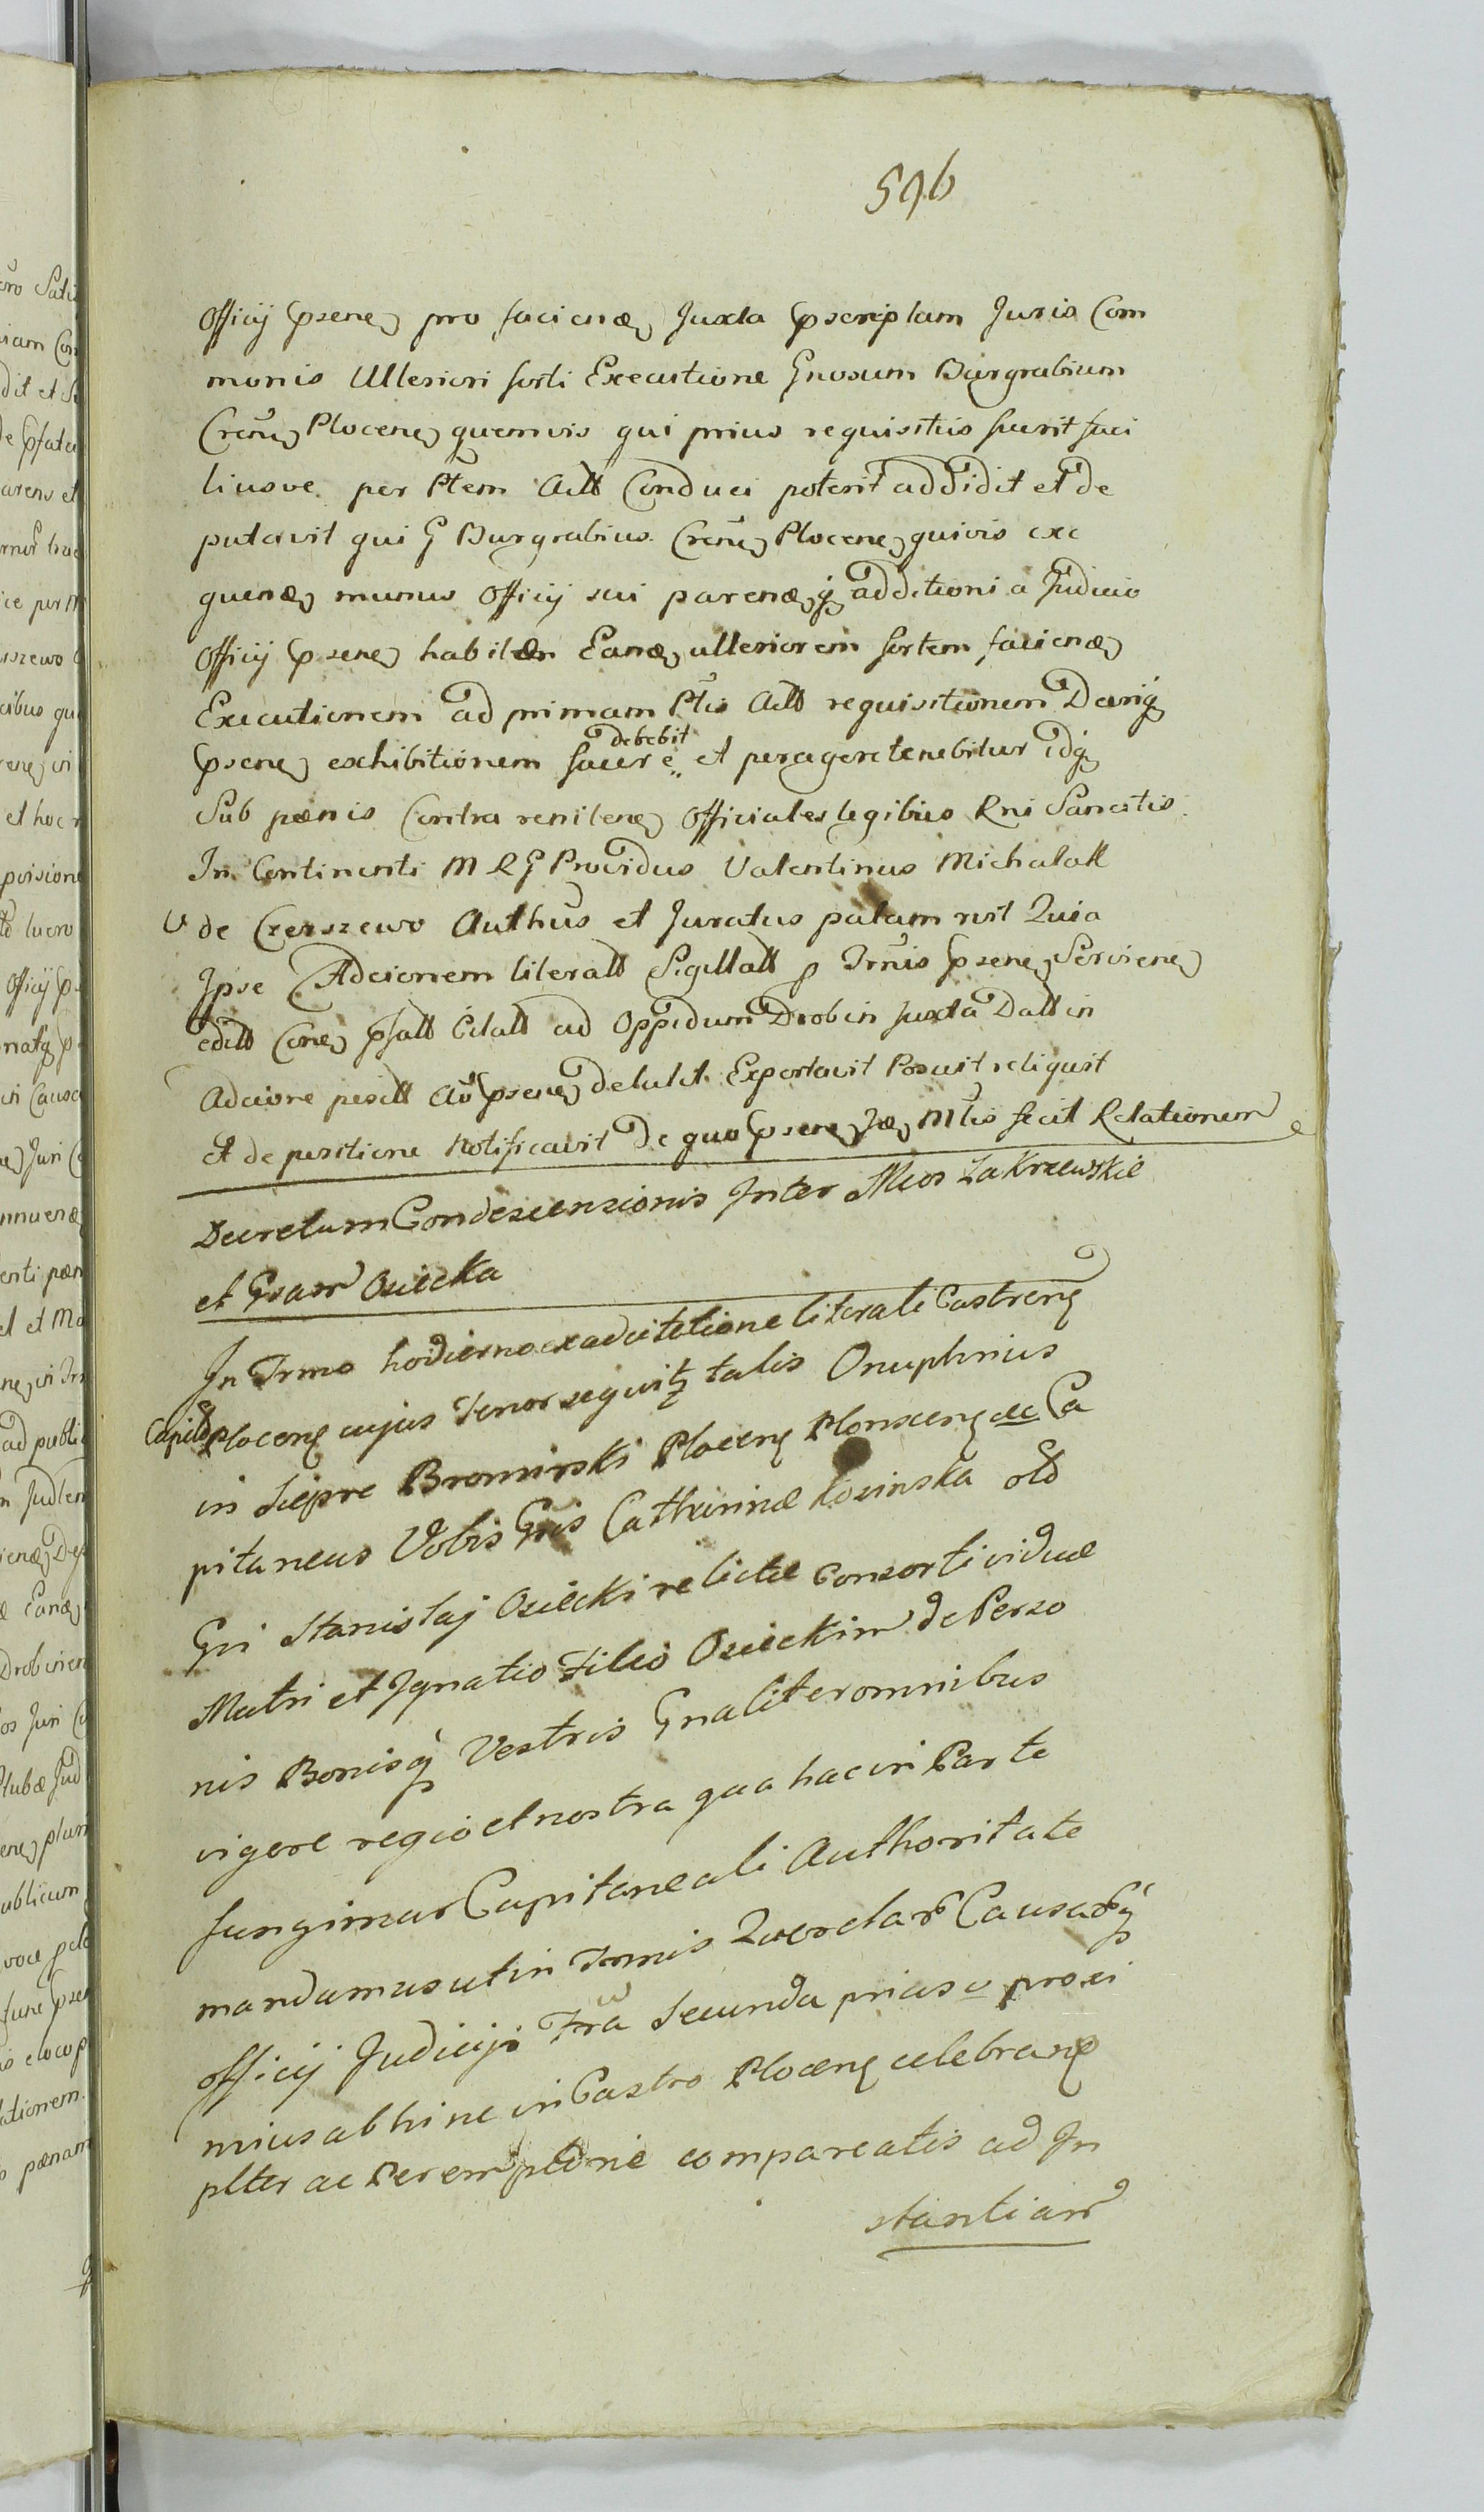 596
Officij psene pro faciend Juxta pscriptam Juris Com
monis Ulteriori forti Executione Gnosum Burgrabium
Crens Plocens quemvis qui prius requisitus fuerit faci
liusve per Ptem Actt Conduci poterit addidit et de
putavit qui G Burgrabius Crens Plocens quivis exe
quend munus Officij sui parendq additioni a Judicio
Officij psens habitæ Eand ulteriorem fortem faciend
Executionem ad primam Ptis Actt requisitionem Decrіq
psens exhibitionem facere debebit et peragere tenebitur idq
Sub pœnis Contra renitens Officiales legibus Rni Sancitis
In Continenti M R G Providus Valentinus Michalak
V de Czerszewo Authus et Juratus palam rvit Quia
Ipse Adcionem literatt Sigillatt p Trnis psens Serviens
editt Cones psatt Citatt ad Oppidum Drobin Juxta Datt in
Adcione positt Au psens detulit Exportavit Posuit reliquit
et de positione Notificavit De quo psens Jud Mtis fecit Relationem
Decretum Condescensionis Inter Mcos Zakrzewskie
et Gsam Osiecka
In Trmo hodierno ex adcitatione literali Castrens
Capitli Plocens cujus Tenor sequitur talis Onuphrius
in Siepre Bromirski Plocens Plonscens etc Ca
pitaneus Vobis Gsis Catharinæ Kosinska old
Gsi Stanislaj Osiecki relictæ Consorti viduæ
Matri et Ignatio Filio Osieckim de Perso
nis Bonisq Vestris Gnaliter omnibus
vigore regio et nostra qua hac in Parte
fungimur Capitaneali Authoritate
mandamus ut in Trmis Querelar Causarq
officij Judicijs Fra Secunda prius v proxi
mius abhinc in Castro Plocens celebrand
plter ac Peremptorie compareatis ad In
stantiam